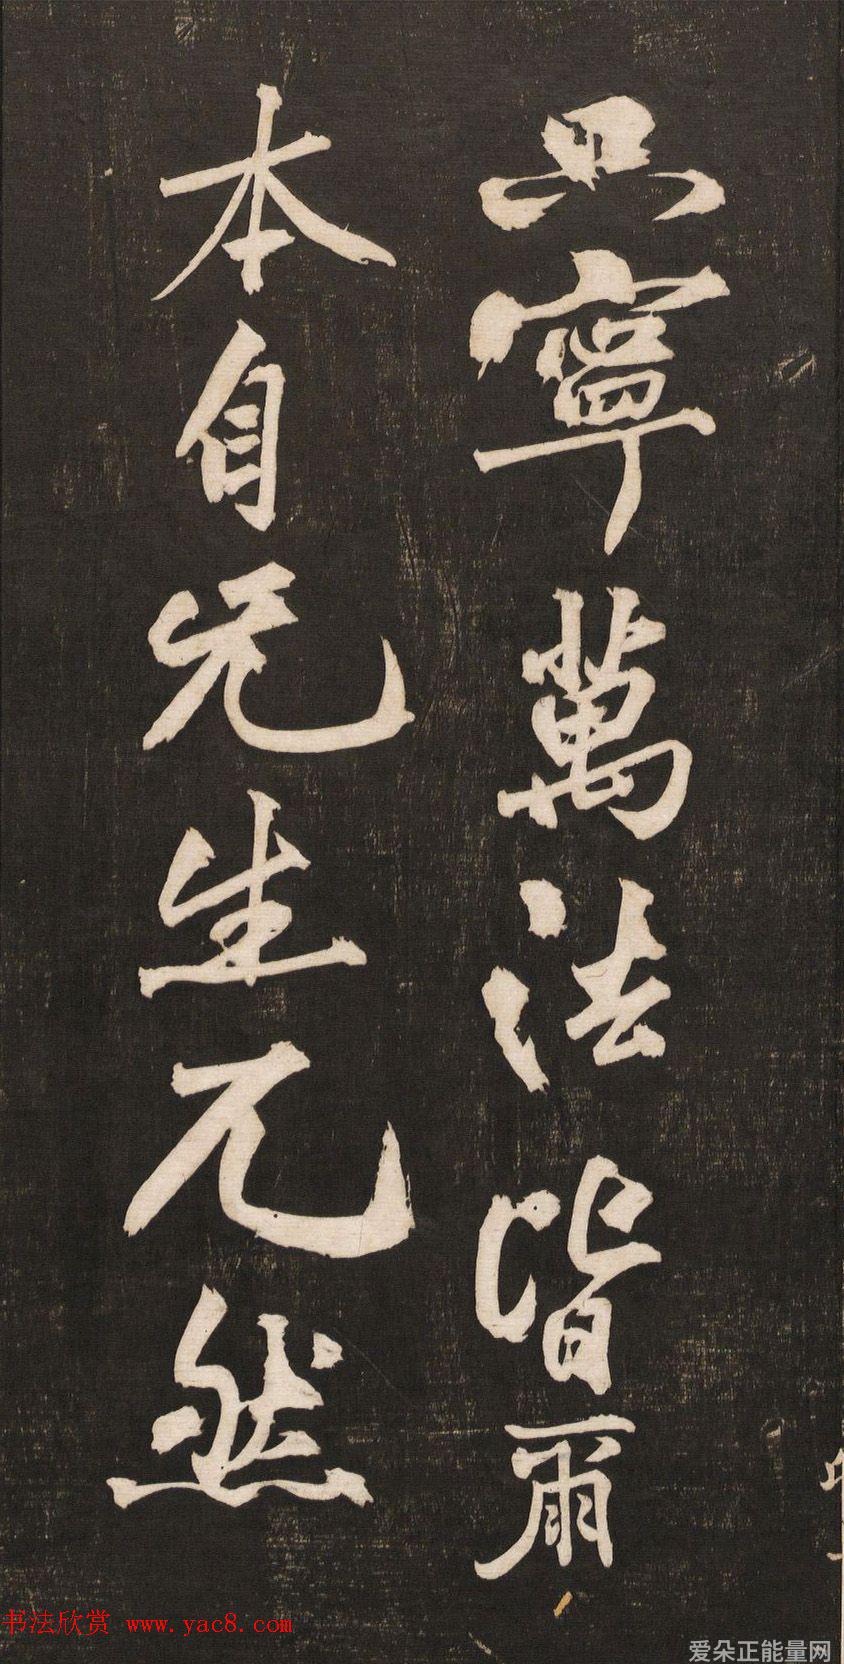 只寧萬法皆爾
本自无生兀然
书法欣赏 www.yac8.com
爱朵正能量网